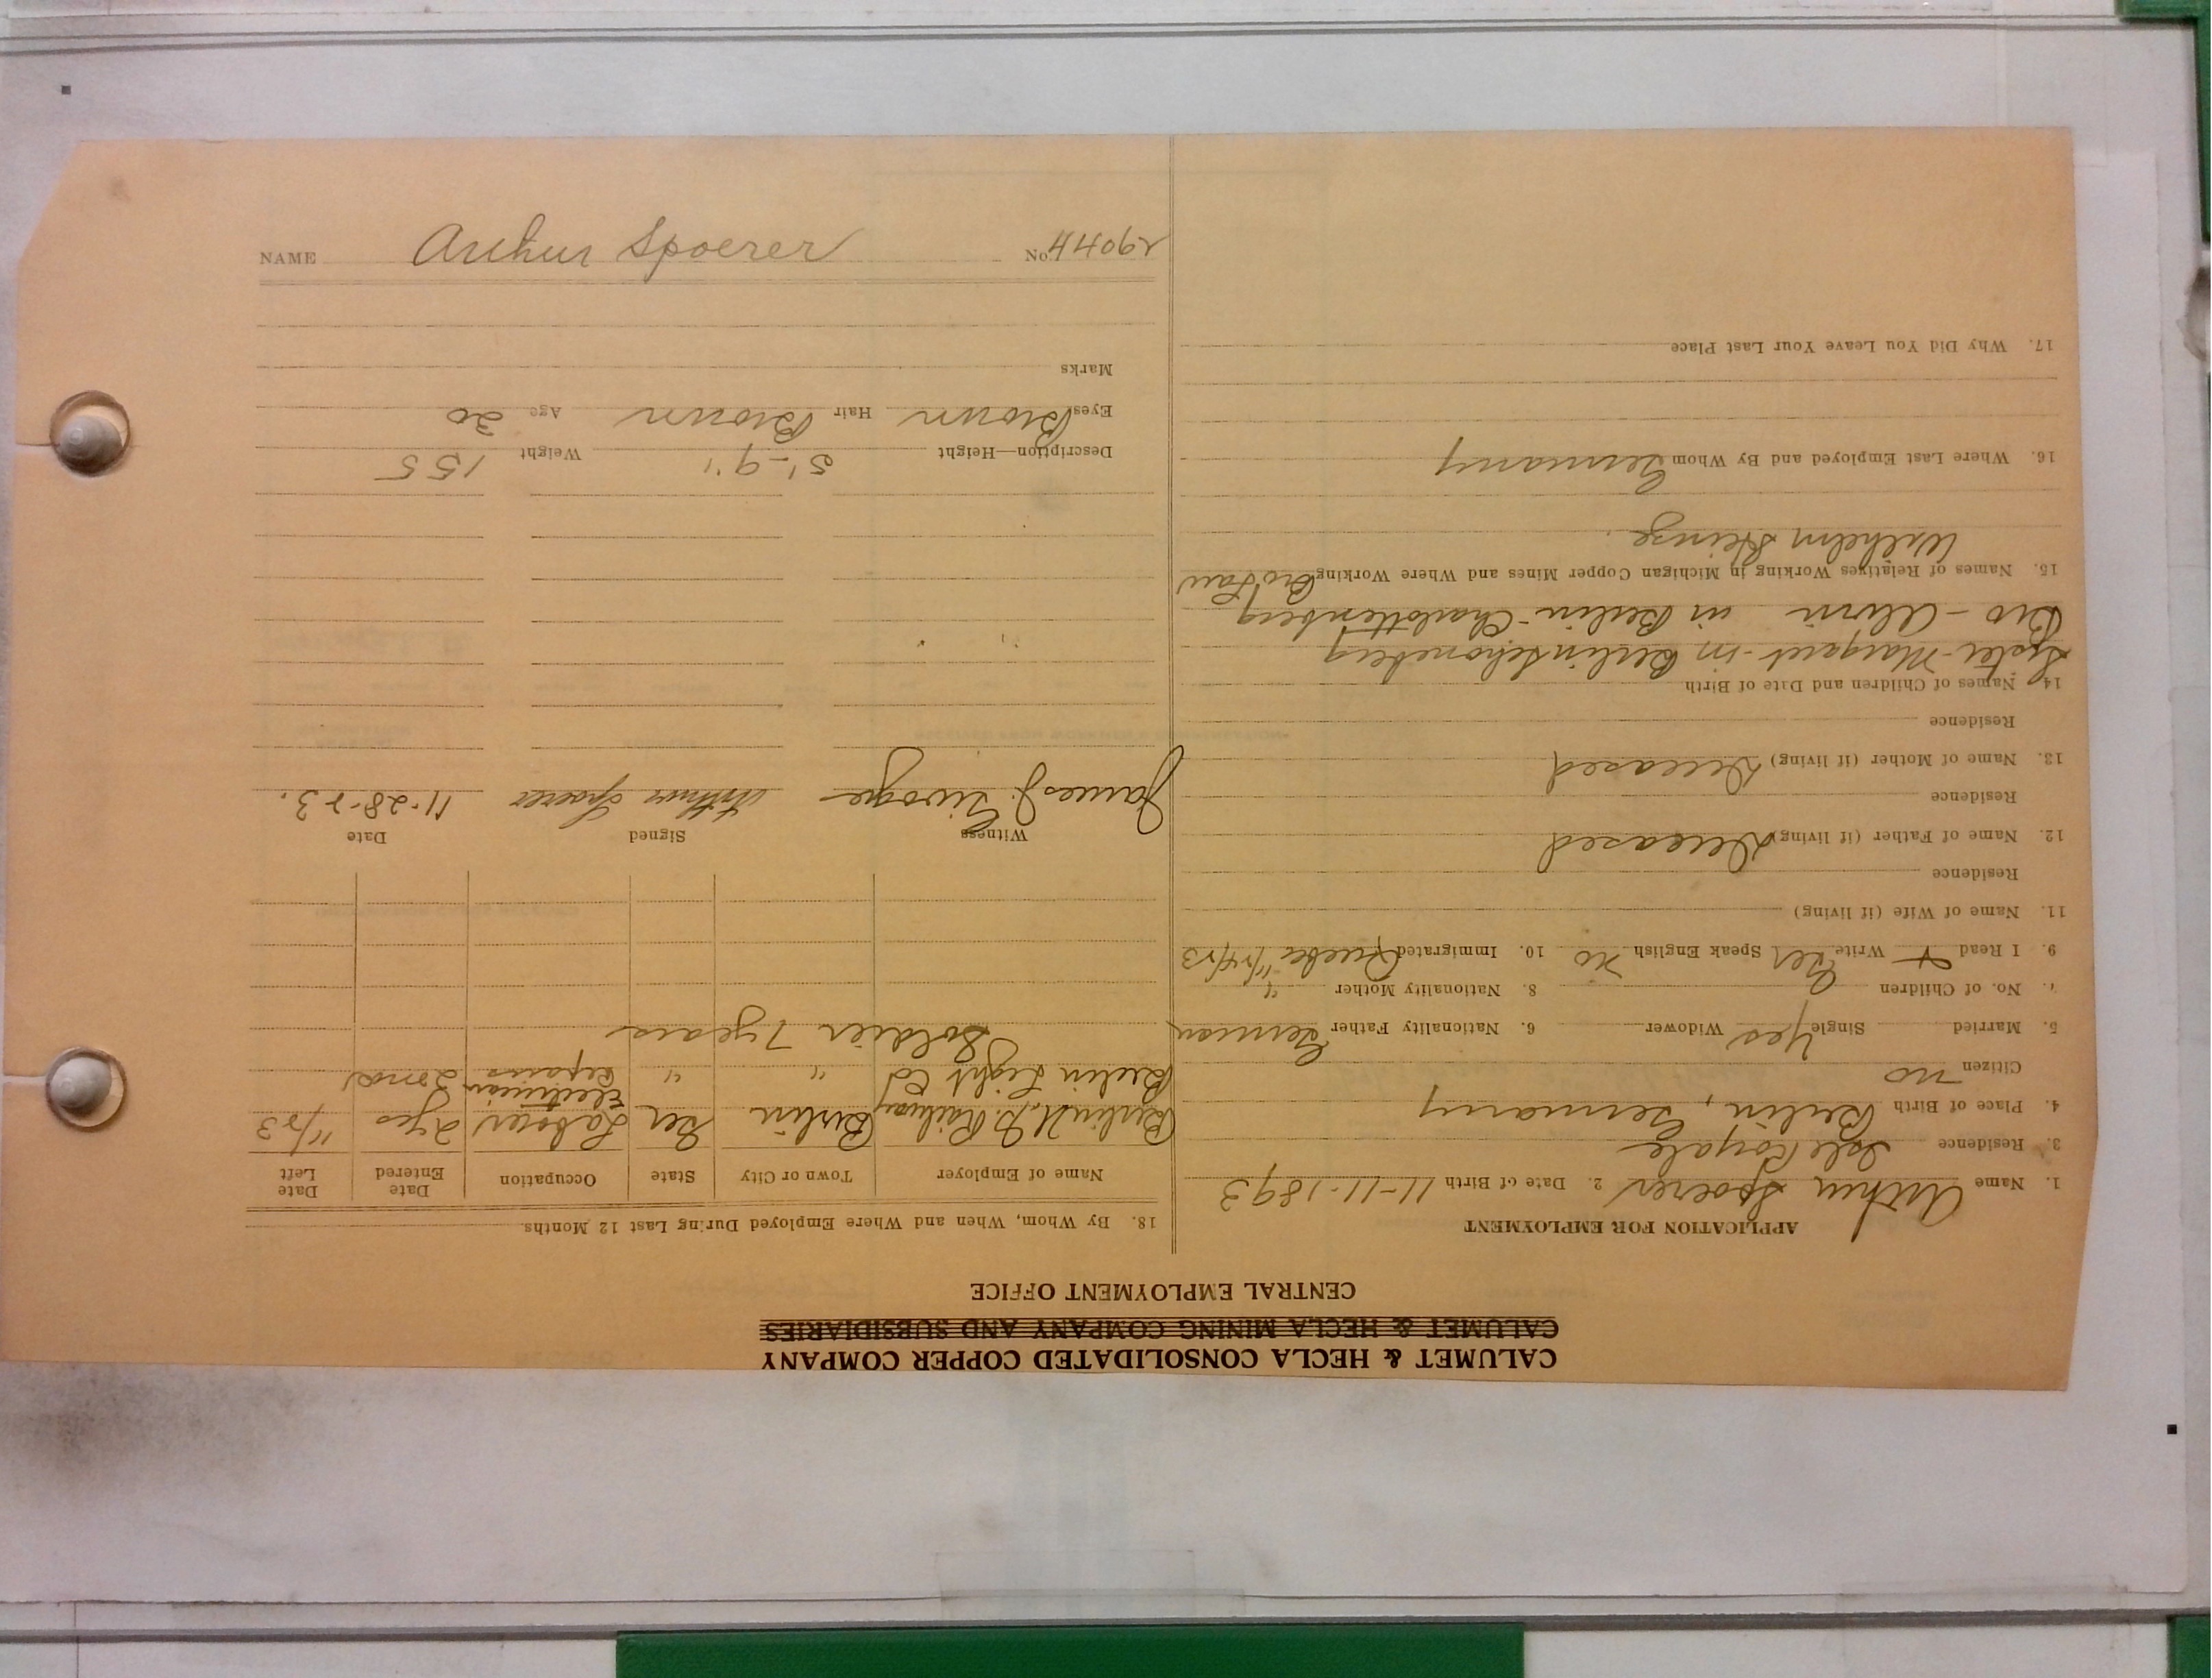 CALUMET & HECLA CONSOLIDATED COPPER COMPANY
CALUMET & HECLA MINING COMPANY AND SUBSIDIARIES
CENTRAL EMPLOYMENT OFFICE
APPLICATION FOR EMPLOYMENT
1. Name Arthur Spoerer 2. Date of Birth 11-11-1893
3. Residence Isle Royale
4. Place of Birth Berlin, Germany
Citizen no
5. Married Single Yes Widower 6. Nationality Father German
7. No. of Children 8. Nationality Mother "
9. I Read + Write Ger Speak English no 10. Immigrated Quebec 11/24/23
11. Name of Wife (if living)
Residence
12. Name of Father (if living) Deceased
Residence
13. Name of Mother (if living) Deceased
Residence
14. Names of Children and Date of Birth
Sister-Margaret-in-Berlin Schoneberg
Bro - Alvin in Berlin-Charlottenberg
15. Names of Relatives Working in Michigan Copper Mines and Where Working Bro Law
Wilhelm
16. Where Last Employed and By Whom Germany
17. Why Did You Leave Your Last Place
18. By Whom, When and Where Employed During Last 12 Months
Name of Employer Town or City State Occupation Date Entered Date Left
Berlin Railway Berlin Ger Laborer 2 yrs 11/23
Berlin Light Co " " Electrician Repairs 2 mos
Soldier 7 years
Witness Signed Date
James J. Arthur Spoerer 11-28-23.
Description—Height 5'-9" Weight 155
Eyes Brown Hair Brown Age 30
Marks
NAME Arthur Spoerer No. 44062